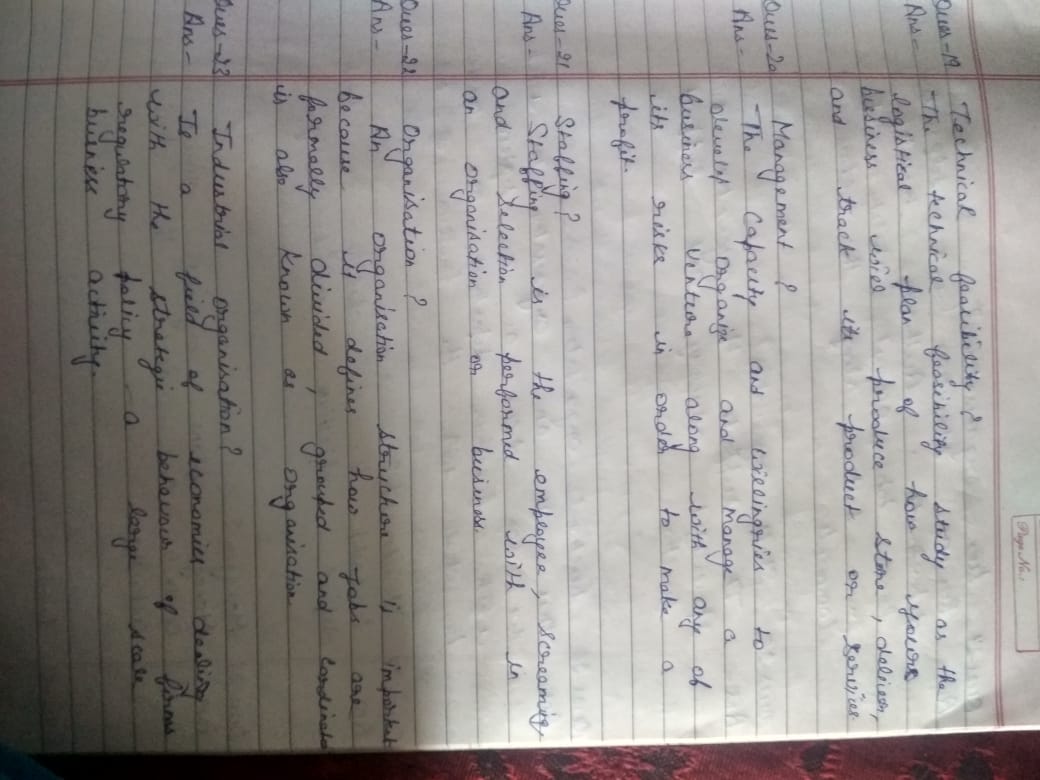 Page No.:
Ques-19 Technical feasibility?
Ans- The technical feasibility study as the
logistical plan of how yours
business will produce store, deliver,
and track its product or services
Ques-20 Management?
Ans- The Capacity and willingness to
develop organize and manage a
business venture along with any of
its risks in order to make a
profit.
Ques-21 Staffing?
Ans- Staffing is the employee, screaming,
and selection performed with in
an organisation or business.
Ques-22 Organisation?
Ans- An organisation structure is important
because it defines how jobs are
formally divided, grouped and Cordinate
is also known as organisation
Ques-23 Industrial organisation?
Ans- Is a field of economics dealing
with the strategic behaviour of firms
regulatory policy a large scale
business activity.